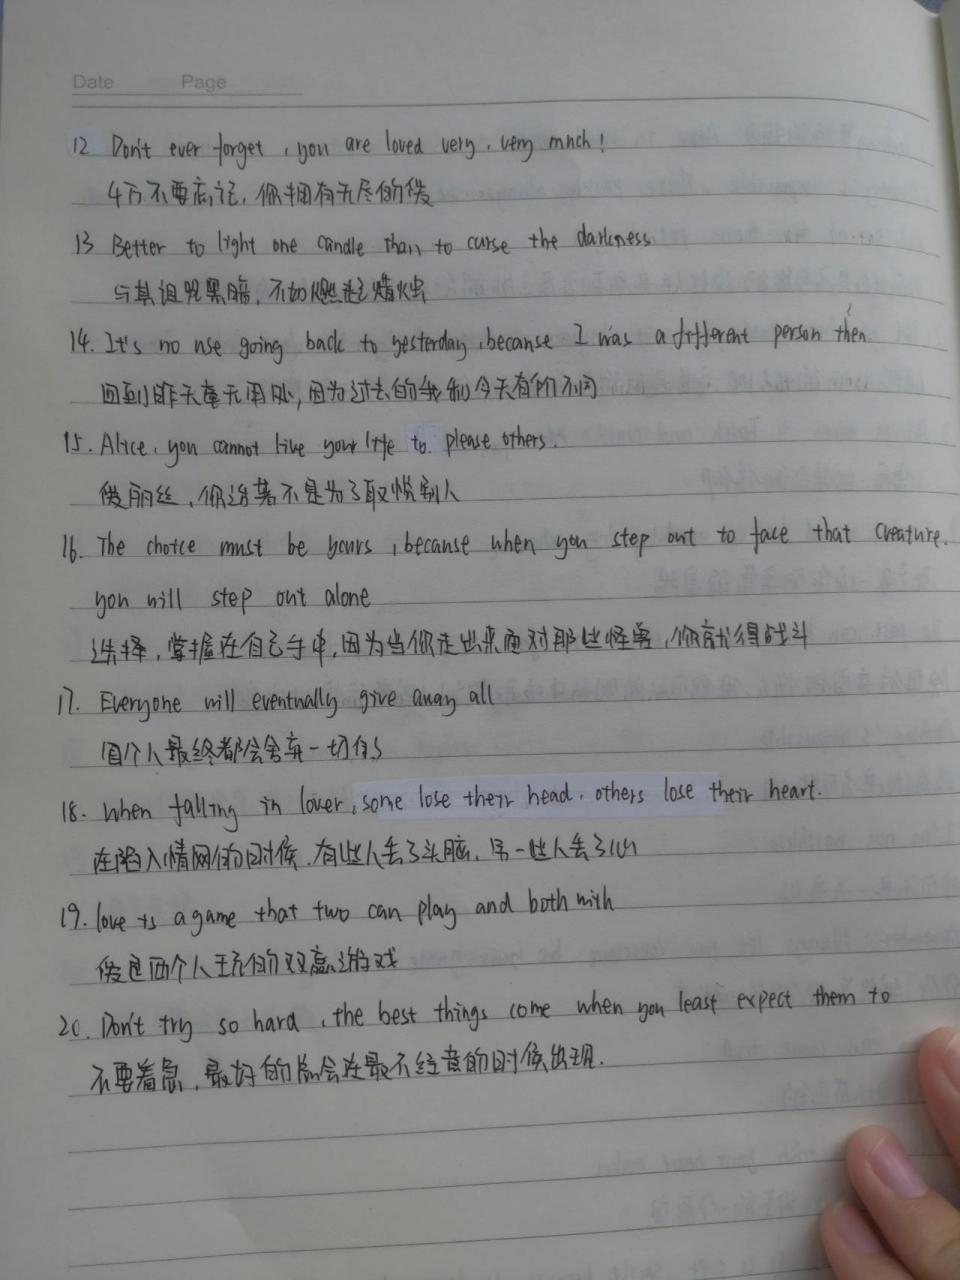 Date Page
12 Don't ever forget, you are loved very, very much!
千万不要忘记,你拥有无尽的爱
13 Better to light one candle than to curse the darkness
与其诅咒黑暗,不如燃起蜡烛
14. It's no use going back to yesterday, because I was a different person then.
回到昨天毫无用处,因为过去的我和今天有所不同
15. Alice, you cannot live your life to please others.
爱丽丝,你活着不是为了取悦别人
16. The choice must be yours, because when you step out to face that creature.
you will step out alone
选择,掌握在自己手中,因为当你走出来面对那些怪兽,你就得战斗
17. Everyone will eventually give away all
每个人最终都会舍弃一切
18. When falling in lover, some lose their head, others lose their heart.
在陷入情网的时候,有些人丢了头脑,另一些人丢了心
19. love is a game that two can play and both with
爱是两个人玩的双赢游戏
20. Don't try so hard, the best things come when you least expect them to
不要着急,最好的总会在最不经意的时候出现.